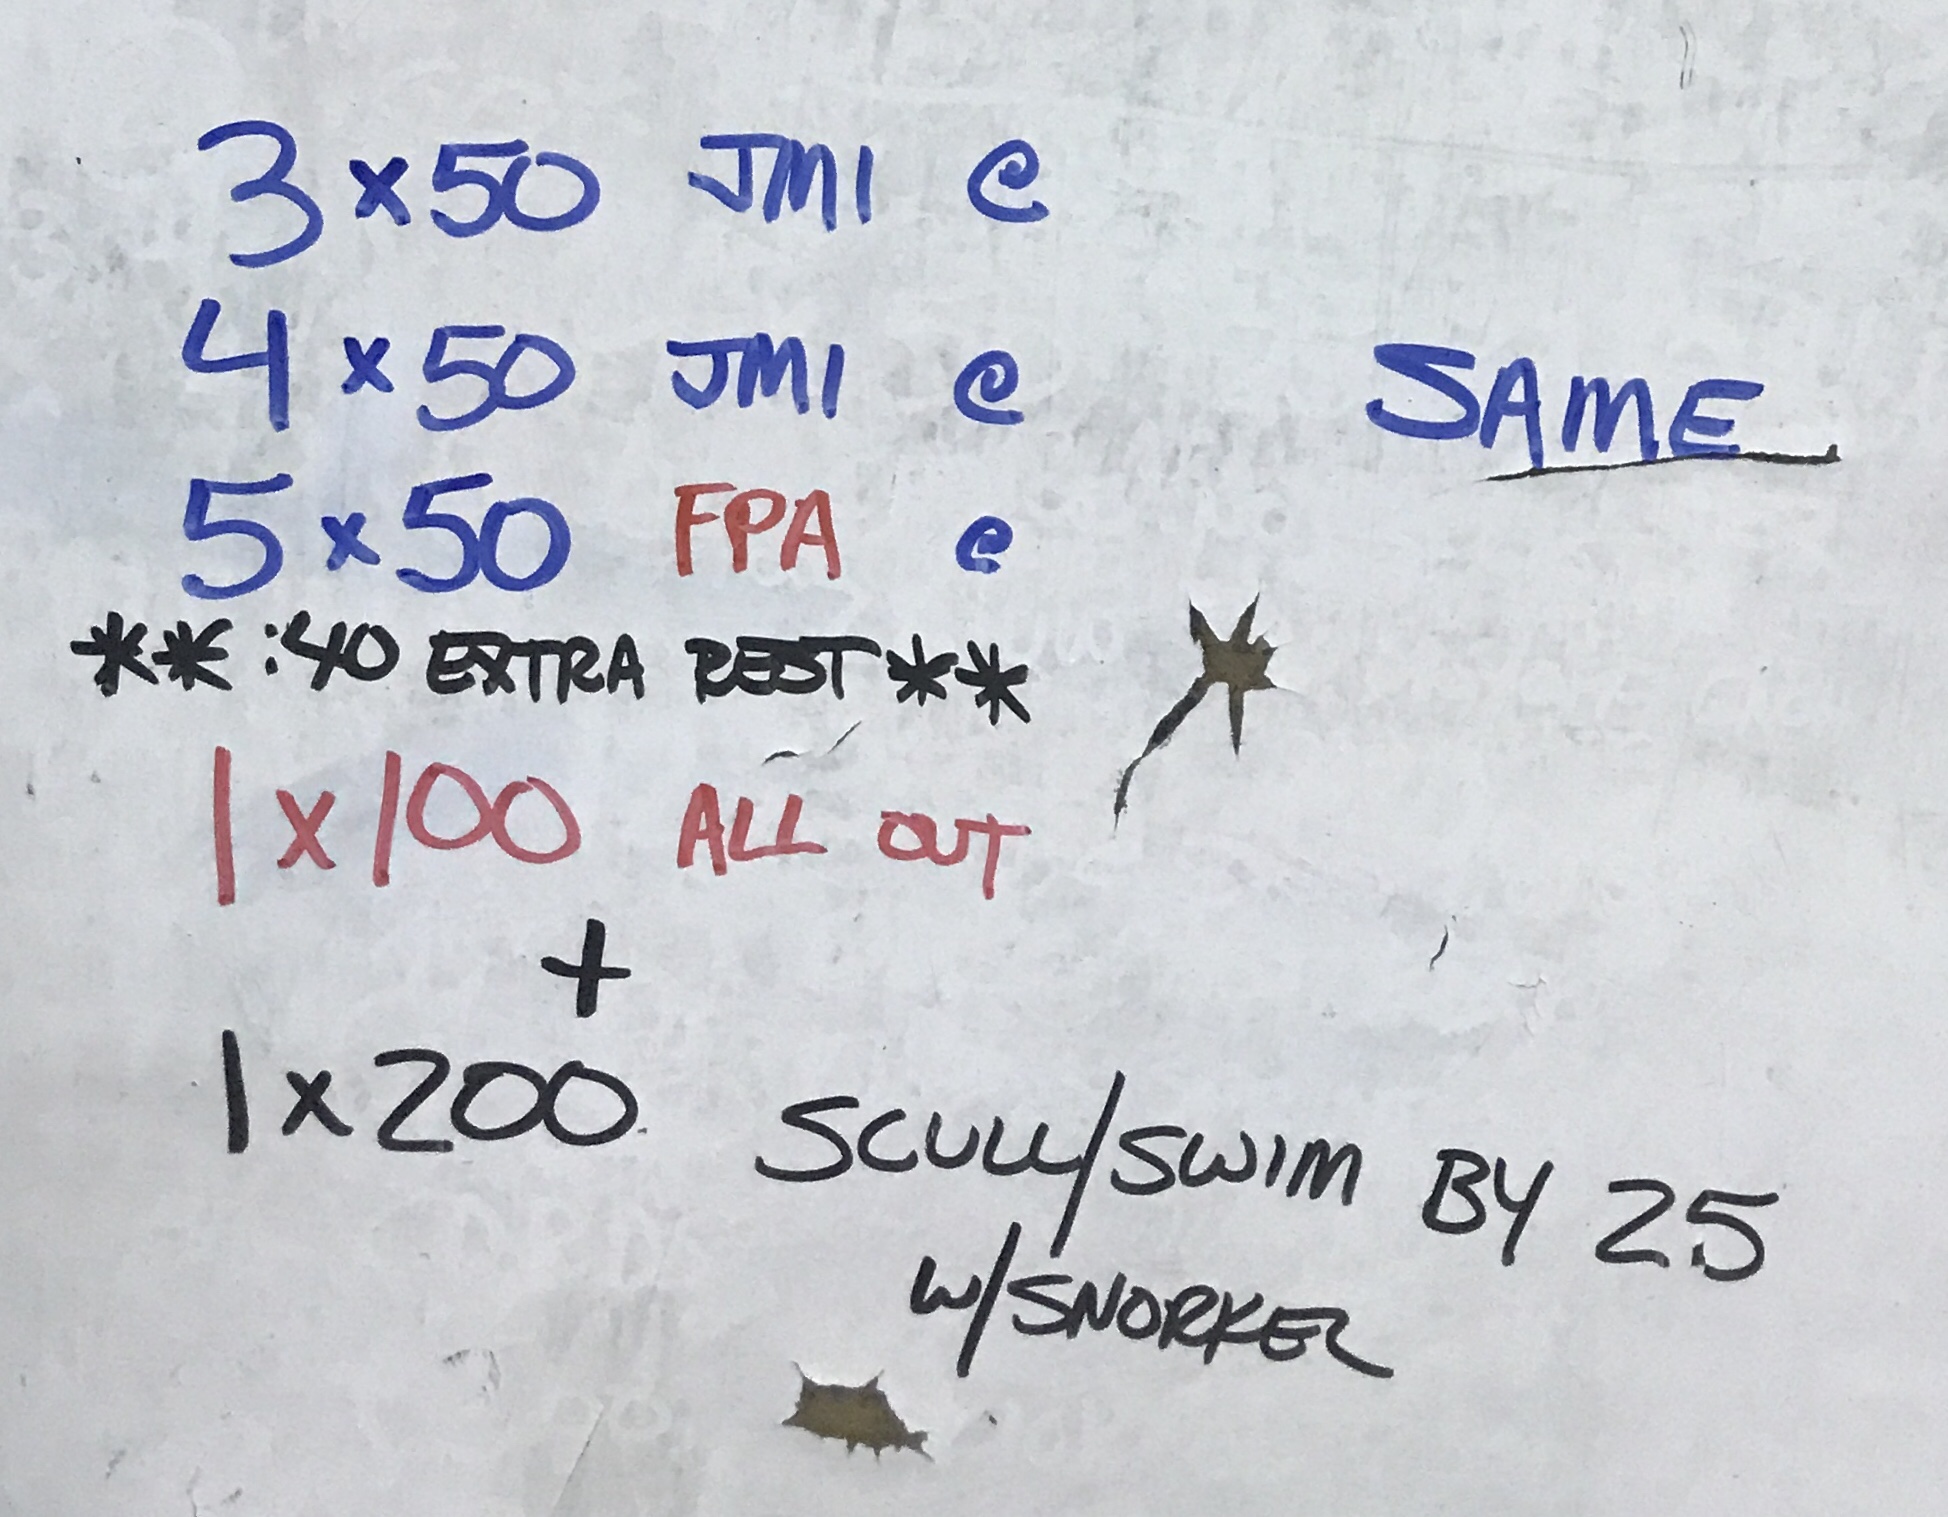 3 x 50 JMI @
4 x 50 JMI @ SAME
5 x 50 FPA @
** :40 EXTRA REST **
1 x 100 ALL OUT
+
1 x 200 SCULL/SWIM BY 25
w/SNORKEL